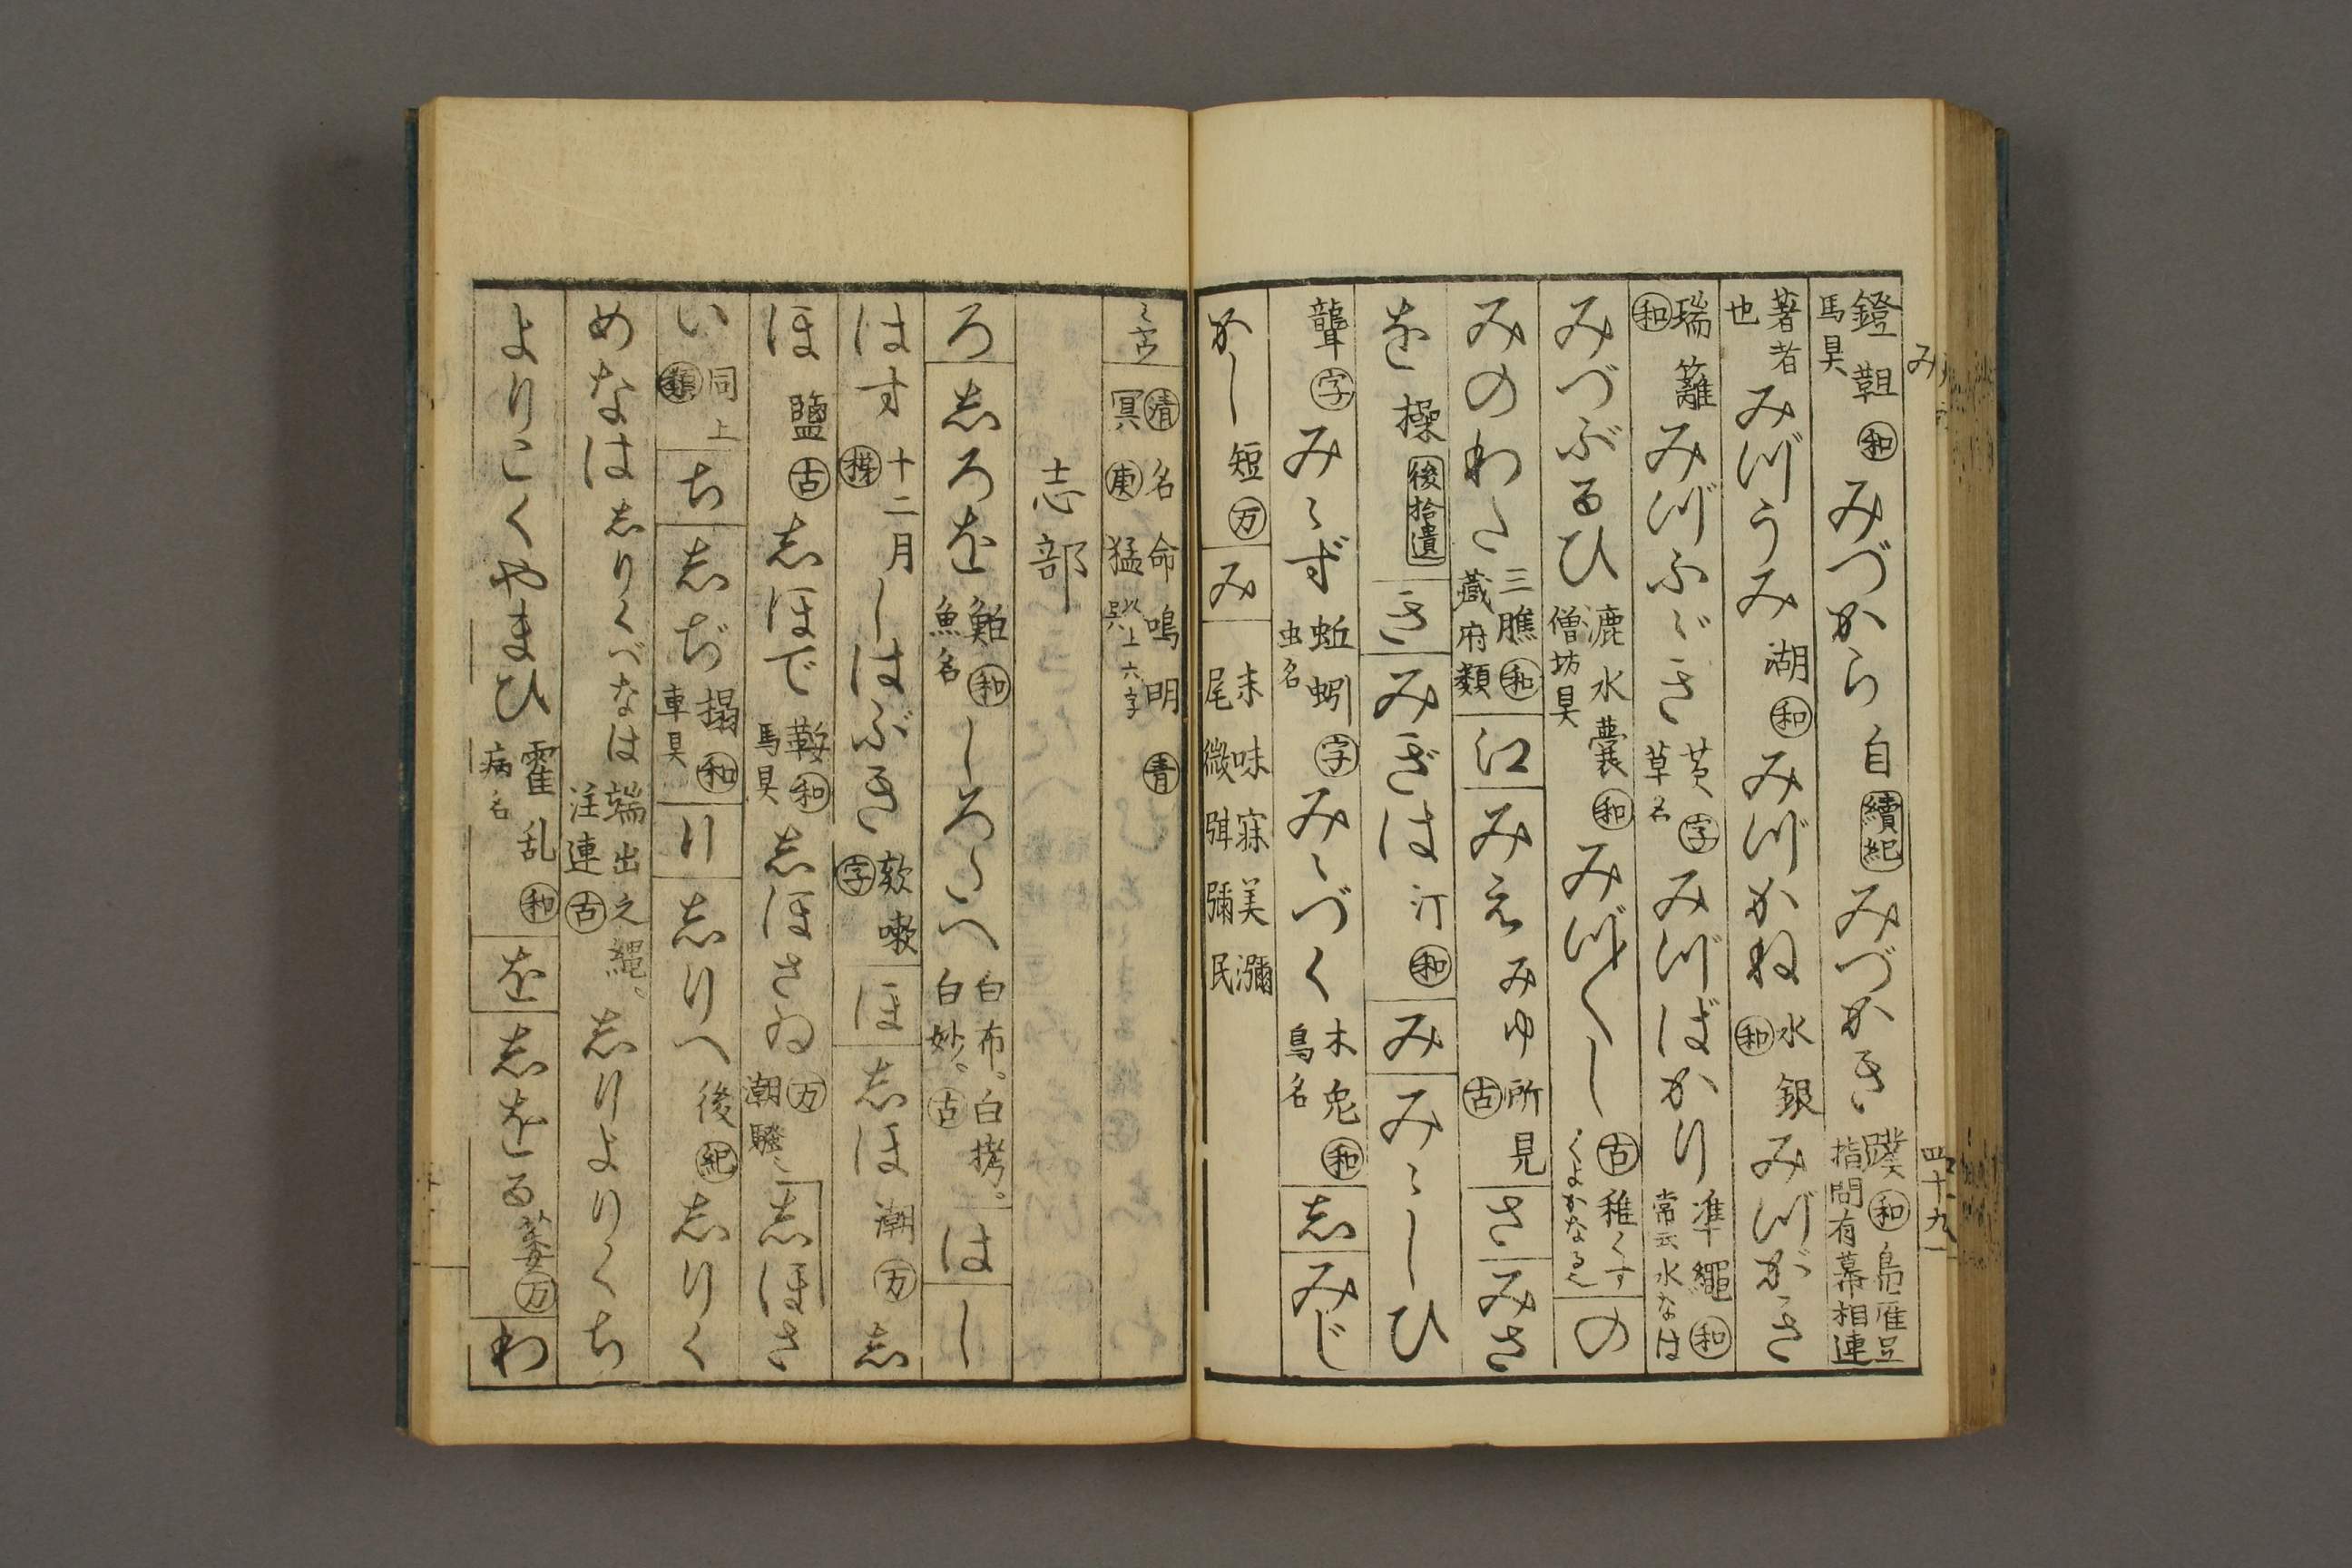 み
四十九
鐙靼 馬具 和 みづからː 自 續紀 みづかき 蹼 和 鳥雁足指間有幕相連
著者也 みづうみ 湖 和 みづかね 水銀 和 みづがき
瑞籬 和 みづふゞき 芡 字 草名 みづばかり 準繩 和 常云水なは
みづぶるひ 漉水囊 和 僧坊具 みづ〳〵し 古 稚くすくよかなる也 の
みのわた 三膲 和 蔵府類 江 みえ みゆ 所見 古 さ みさ
を 操 後拾遺 き みぎは 汀 和 み みゝしひ
聾 字 みゝず 蚯蚓 字 虫名 みゝづく 木兎 和 鳥名 志 みじ
かし 短 万 み 未味寐美瀰 尾微弭彌民
清 名命鳴明 青 冥 庚 猛 以上六字呉
志部
ろ しろを 鮐 和 魚名 しろたへ 白布。白栲。白妙。 古 は し
はす 十二月 しはぶき 欬嗽 字 ほ しほ 潮 万 し
ほ 鹽 古 しほで 鞍 和 馬具 しほさゐ 万 潮騒 しほさ
い 同上 類 ち しぢ 榻 和 車具 り しりへ 後 紀 しりく
めなは しりくべなは 端出之縄。注連 古 しりよりくち
よりこくやまひ 霍乱 和 病名 を しをる 萎 万 わ